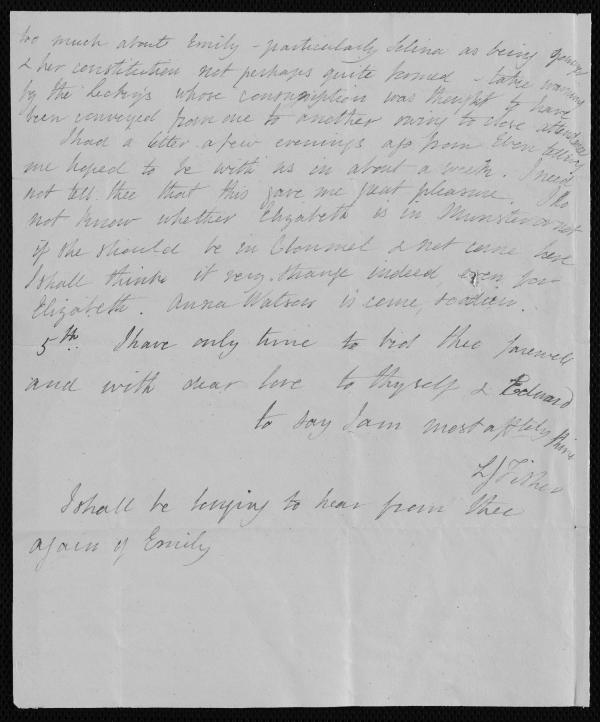 too much about Emily - particularly Selina as being younger
& her constitution not perhaps quite formed - take warning
by the Leckys whose consumption was thought to have
been conveyed from one to another owing to close attendance
I had a letter a few evenings ago from Eben telling
me hoped to be with us in about a week. I need
not tell thee that this gave me great pleasure. I do
not know whether Elizabeth is in Munster or not
if she should be in Clonmel & not come here
I shall think it very strange indeed, even for
Elizabeth. Anna Watson is come,
5th. I have only time to bid thee farewell
and with dear love to thyself & Edward
to say I am most afftely thine
LJ Fisher
I shall be longing to hear from thee
again of Emily